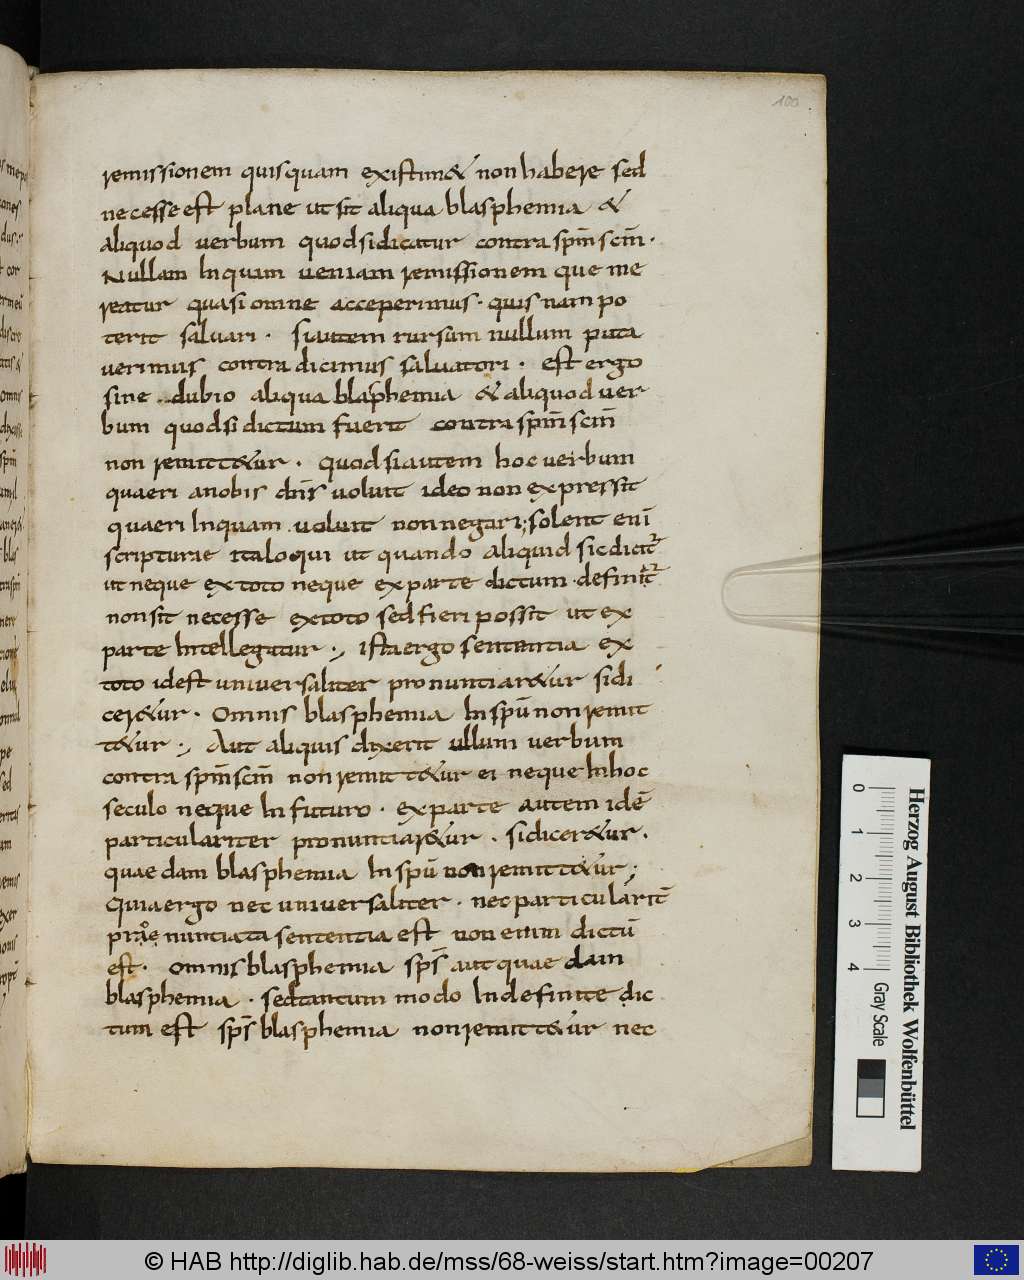 100
remissionem quisquam existim& non habere sed
necesse est plane ut sit aliqua blasphemia &
aliquod verbum quod si dicatur contra spm̄ scm̄.
Nullam Inquam veniam remissionem que me
reatur quasi omne acceperimus. quis nam po
terit salvari. si autem rursum nullum puta
verimus contra dicimus salvatori. est ergo
sine dubio aliqua blasphemia & aliquod ver
bum quod si dictum fuerit contra spm̄ scm̄
non remitt&ur. quod si autem hoc verbum
quaeri a nobis dn̄s voluit ideo non expressit
quaeri Inquam voluit non negari; solent enī
scripturae ita loqui ut quando aliquid sic dicit̄
ut neque ex toto neque ex parte dictum definit̄
non sit necesse ex toto sed fieri possit ut ex
parte Intellegatur; ista ergo sententia ex
toto id est universaliter pronuntiar&ur si di
cer&ur. Omnis blasphemia In spū non remit
t&ur; Aut aliquis dixerit ullum verbum
contra spm̄ scm̄ non remitt&ur ei neque In hoc
seculo neque In futuro. ex parte autem id ē
particulariter pronuntiar&ur. si dicer&ur.
quaedam blasphemia In spū non remitt&ur;
Quia ergo nec universaliter. nec particularit̄
pronuntiata sententia est non enim dictū
est. omnis blasphemia sps̄ aut quaedam
blasphemia. sed tantum modo Indefinite dic
tum est sps̄ blasphemia non remitt&ur nec
Herzog August Bibliothek Wolfenbüttel
0 1 2 3 4
Gray Scale
© HAB http://diglib.hab.de/mss/68-weiss/start.htm?image=00207